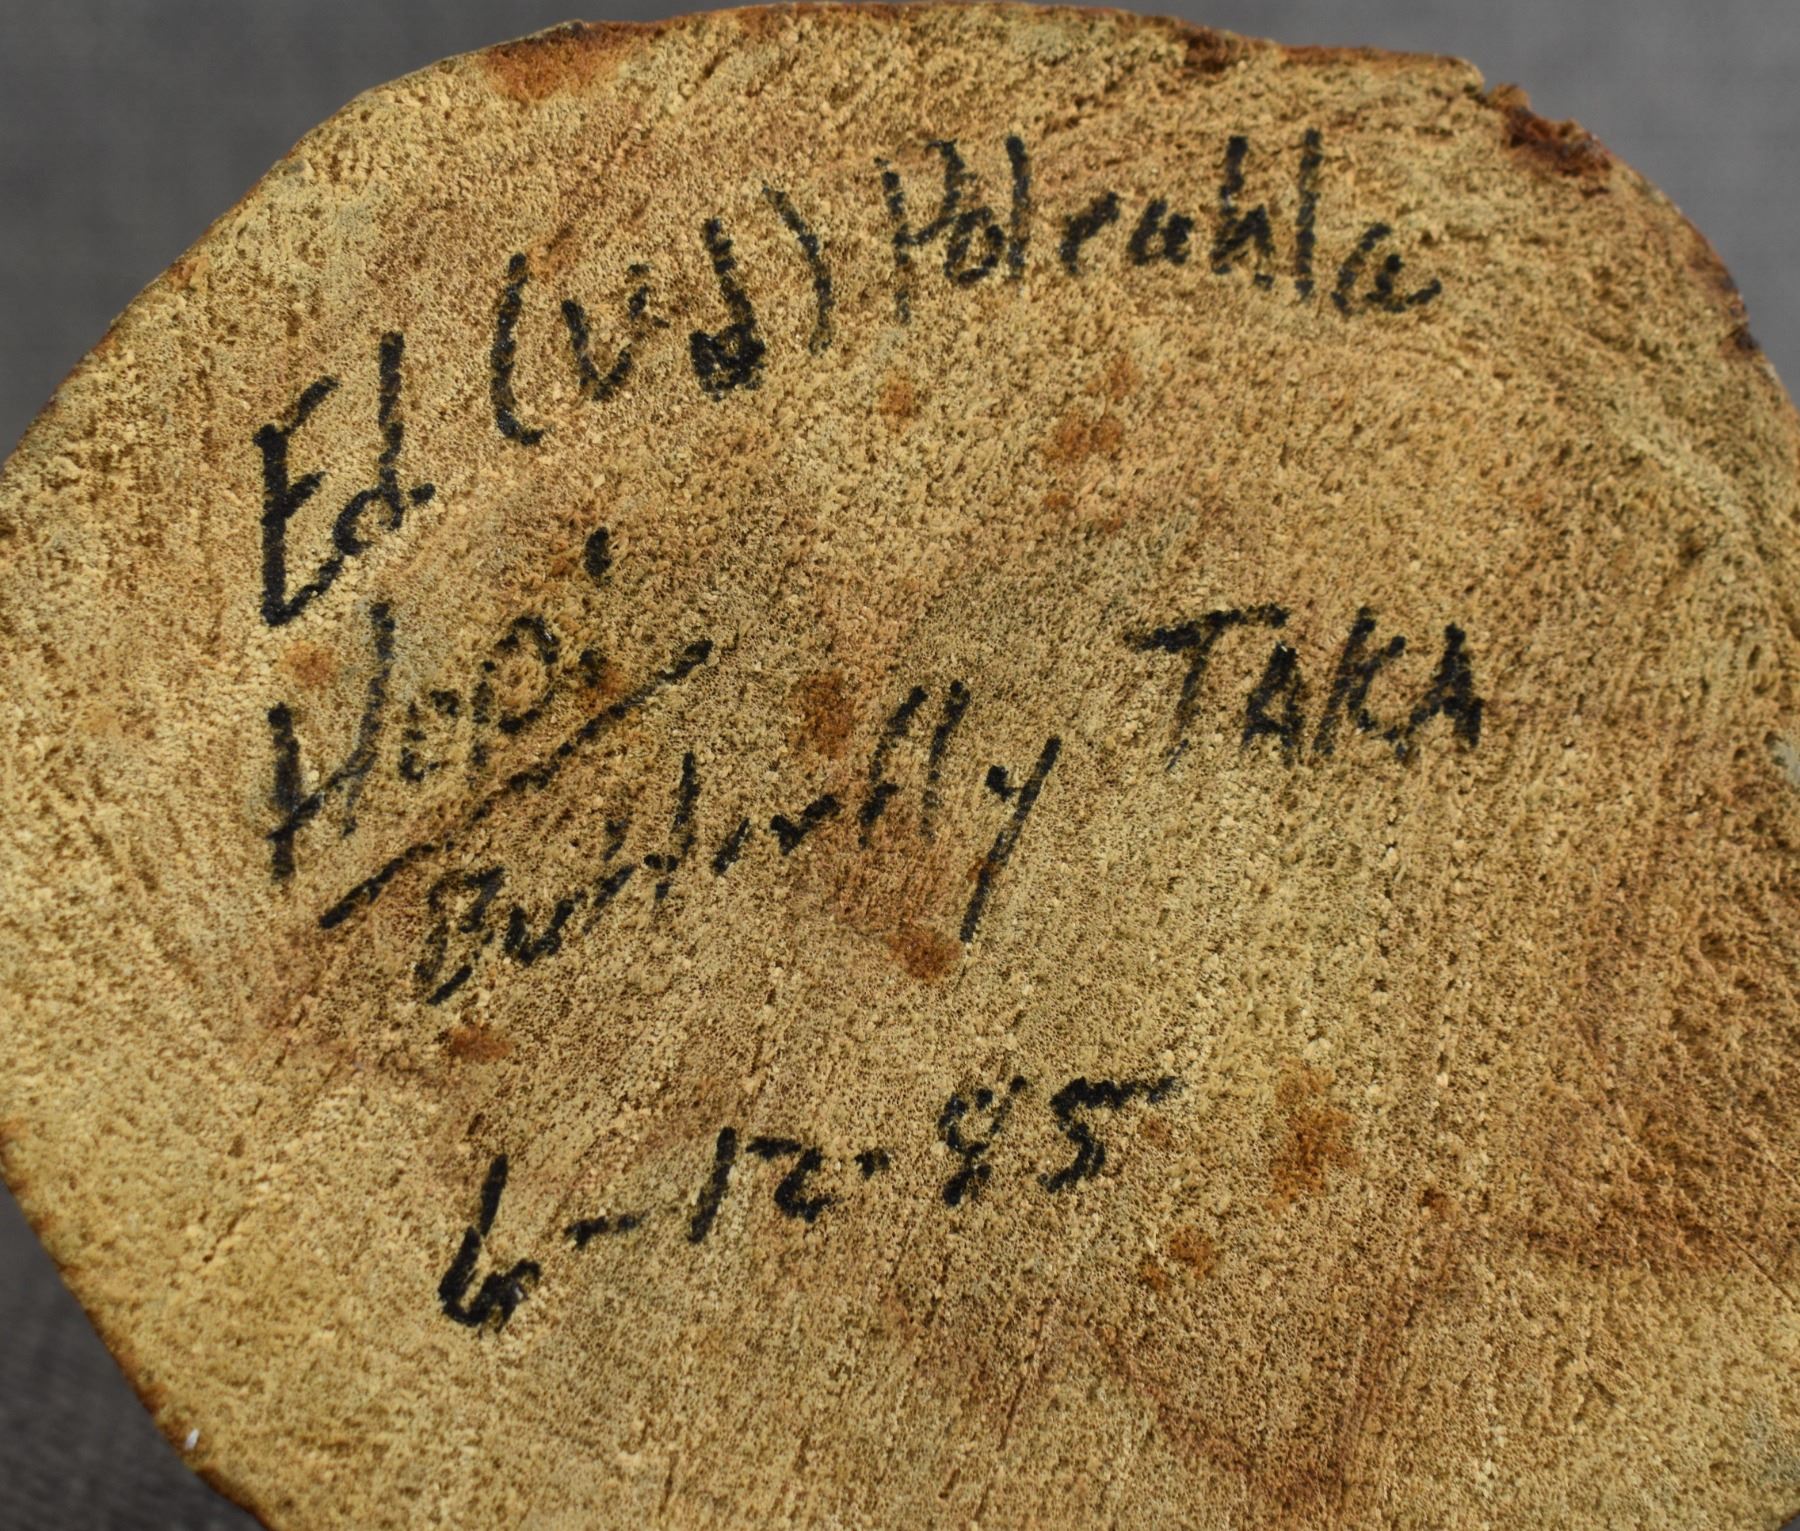 Ed (Vid) Poleahla
Hopi
Butterfly TAKA
6-12-95